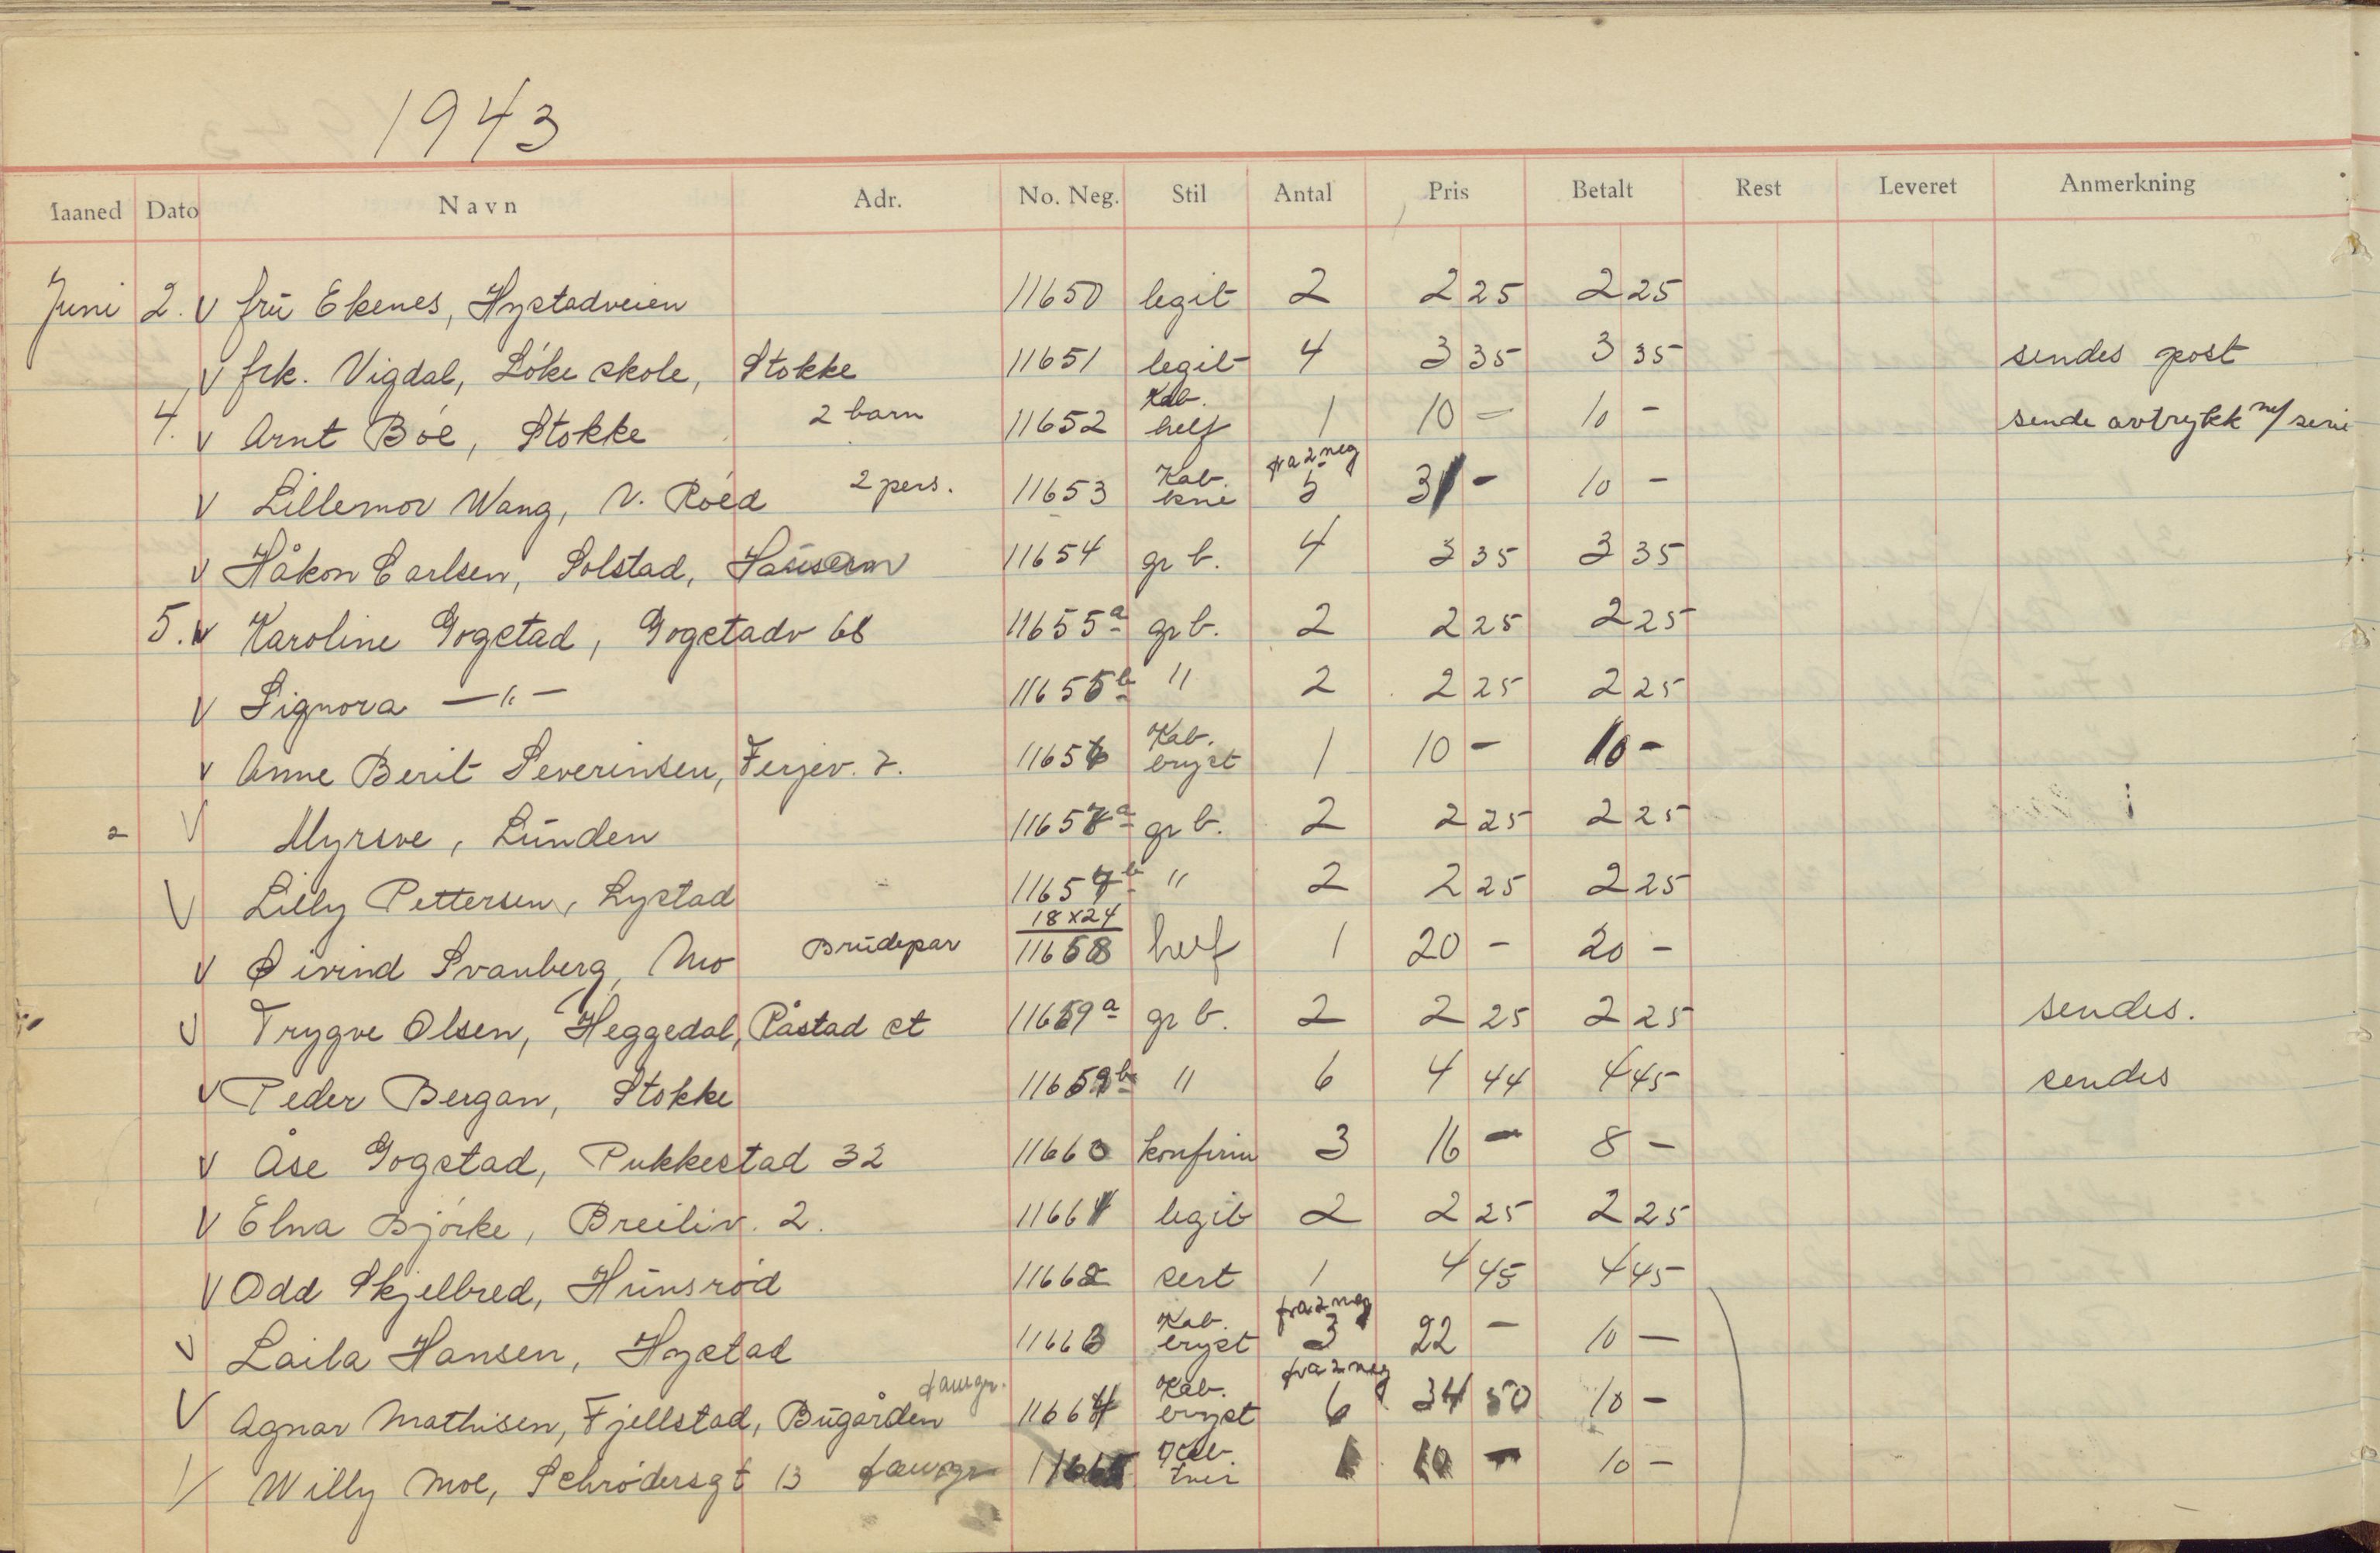 1943
Maaned Dato Navn Adr. No. Neg. Stil Antal Pris Betalt Rest Leveret Anmerkning
Juni 2. V frü Ekenes, Hystadveien 11650 legit 2 2 25 2 25
V frk. Vigdal, Löke skole, Stokke 11651 legit 4 3 35 3 35 sendes post
4. V Arnt Böe, Stokke 2 barn 11652 Kab. helf 1 10 - 10 - sende avtrykk
V Lillemor Wang, N. Röed 2 pers. 11653 Kab. kne fra 2 neg 5 31 - 10 -
V Håkon Carlsen, Solstad, 11654 gr b. 4 3 35 3 35
5. V Karoline Gogstad, Gogstadv 68 11655a gr b. 2 2 25 2 25
V Signora —"— 11655b " 2 2 25 2 25
V Anne Berit Severinsen, Ferjev. 7. 11656 Kab. bryst 1 10 - 10 -
V Myrsve, Lünden 11657a gr b. 2 2 25 2 25
V Lilly Pettersen, Lystad 11657b " 2 2 25 2 25
V Øivind Svanberg, Mo Brüdepar 18x24 11658 helf 1 20 - 20 -
V Trygve Olsen, Heggedal, Råstad st 11659a gr b. 2 2 25 2 25 sendes.
V Peder Bergan, Stokke 11659b " 6 4 44 4 45 sendes
V Åse Gogstad, Pukkestad 32 11660 konfirm 3 16 - 8 -
V Elna Björke, Breiliv. 2. 11661 legit 2 2 25 2 25
V Odd Skjelbred, Hünsröd 11662 sert 1 4 45 4 45
V Laila Hansen, Hystad 11663 Kab. bryst fra 2 neg 3 22 - 10 -
V Agnar Mathisen, Fjellstad, Bügården famgr. 11664 Kab. bryst fra 2 neg 6 34 50 10 -
V Willy Moe, Schrödersgt 13 famgr 11665 Kab. 1 10 - 10 -